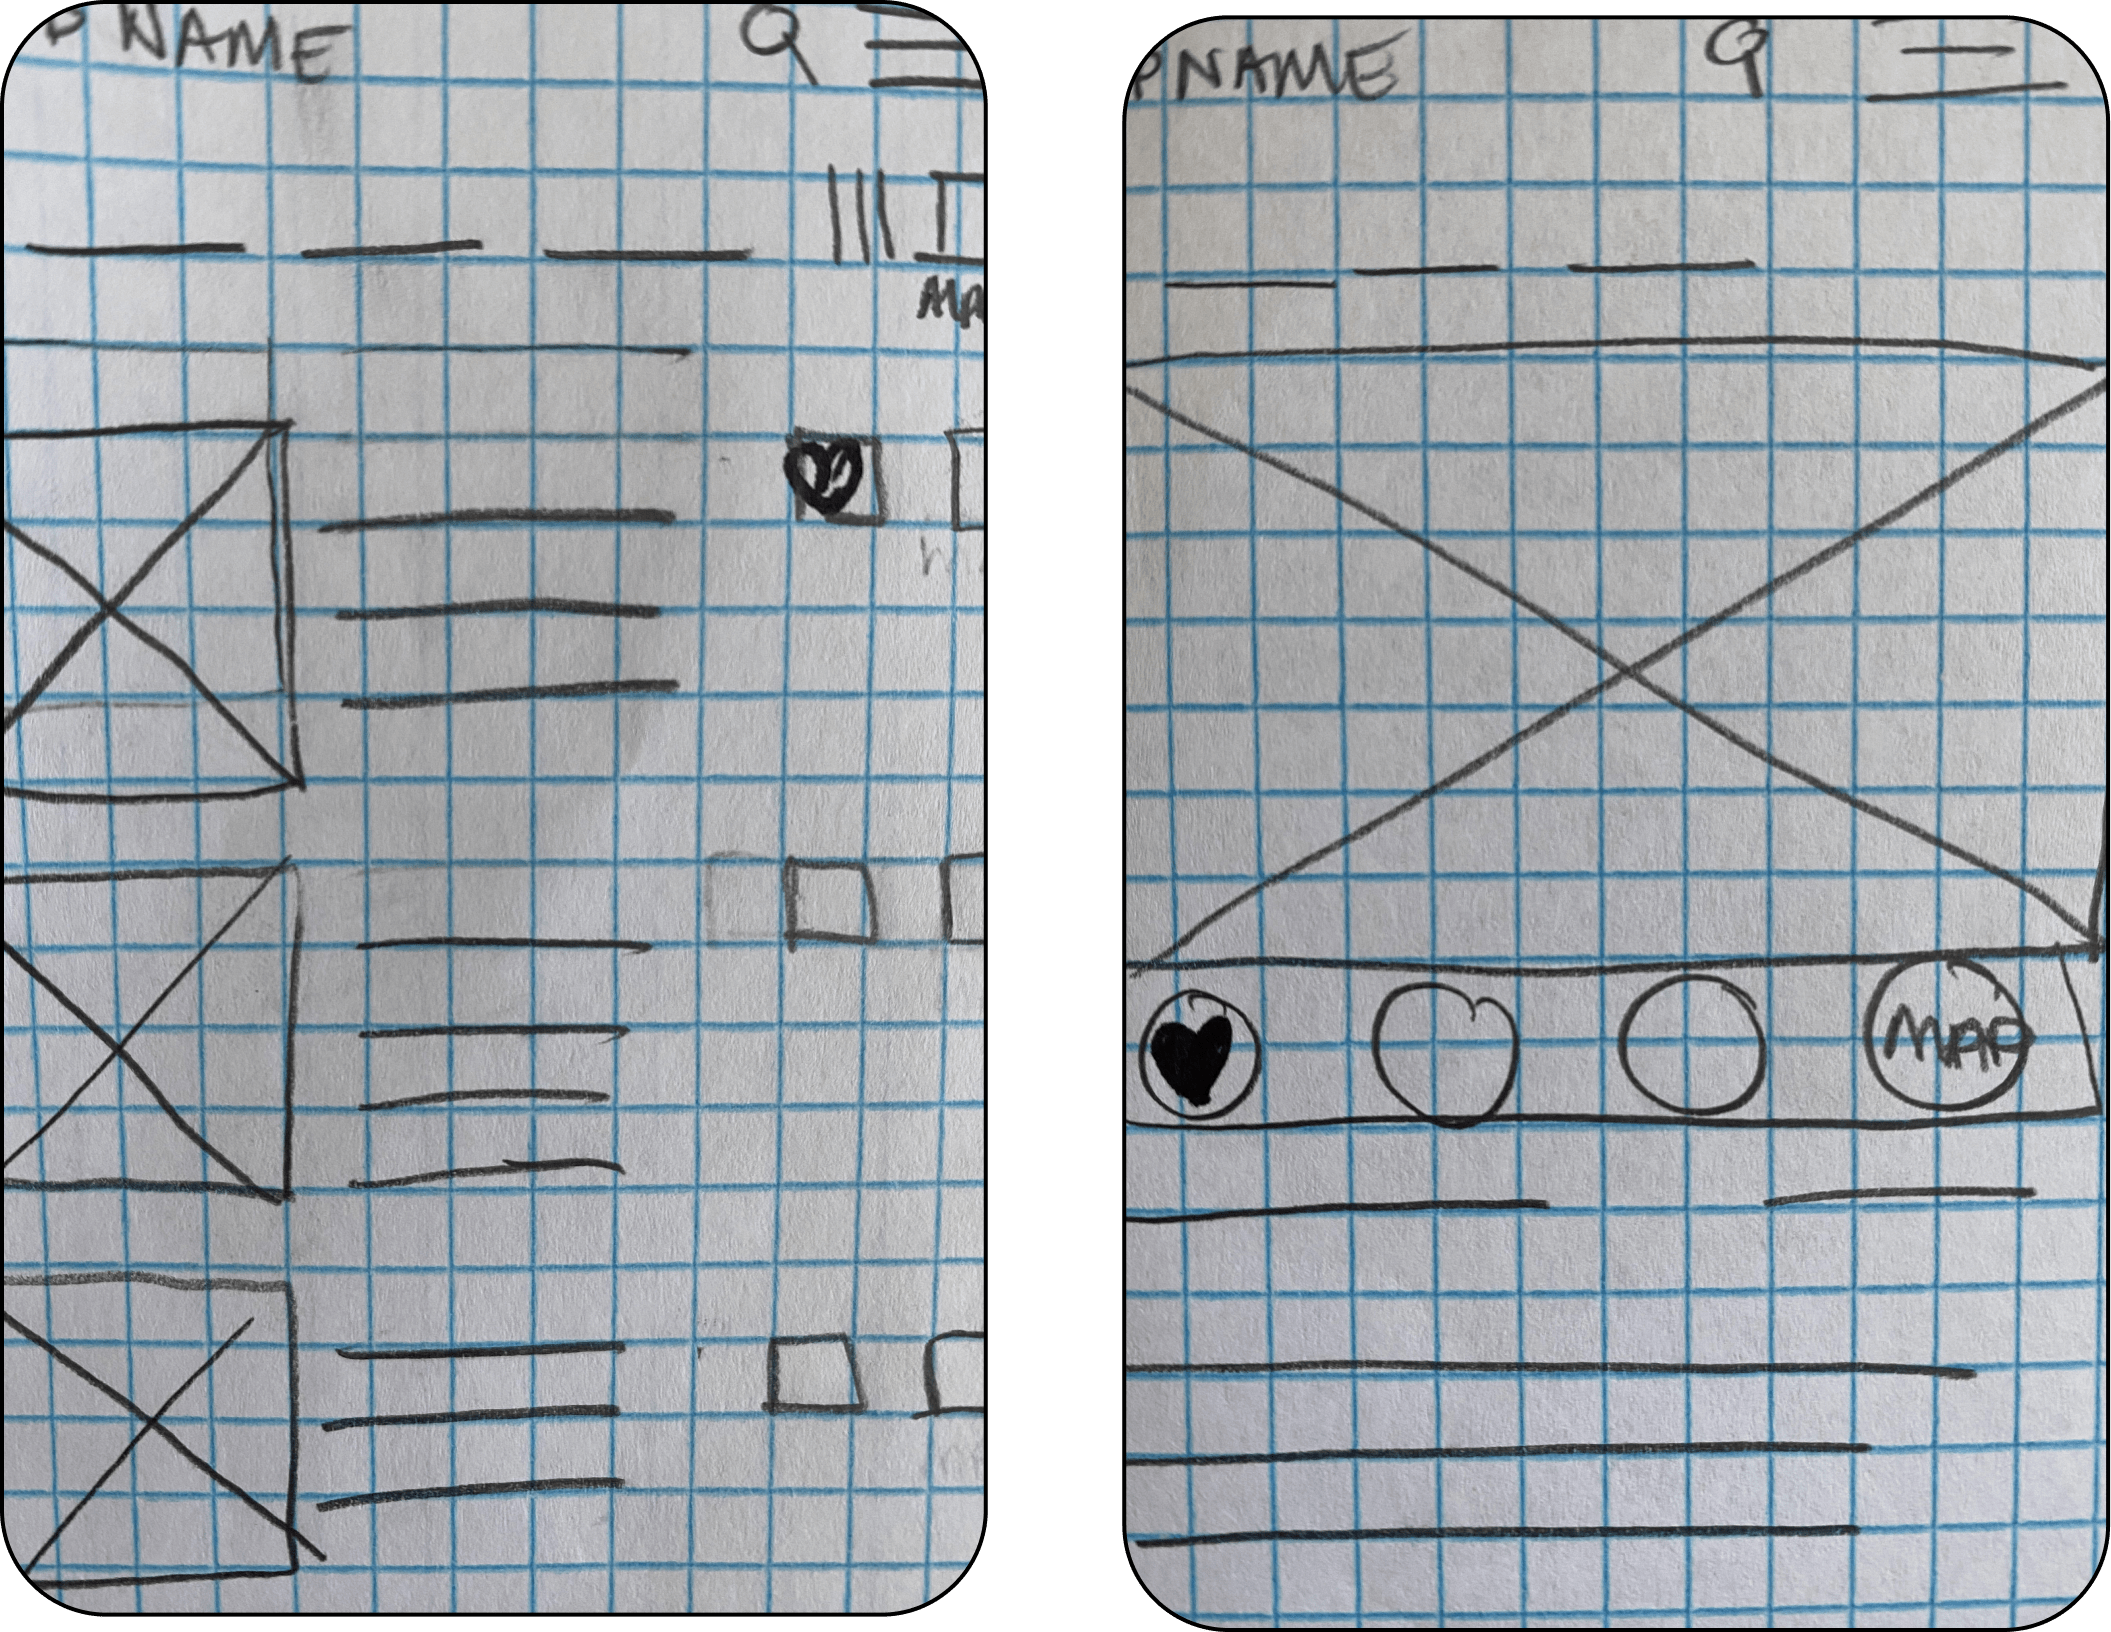 P NAME
MA
PNAME
MAP